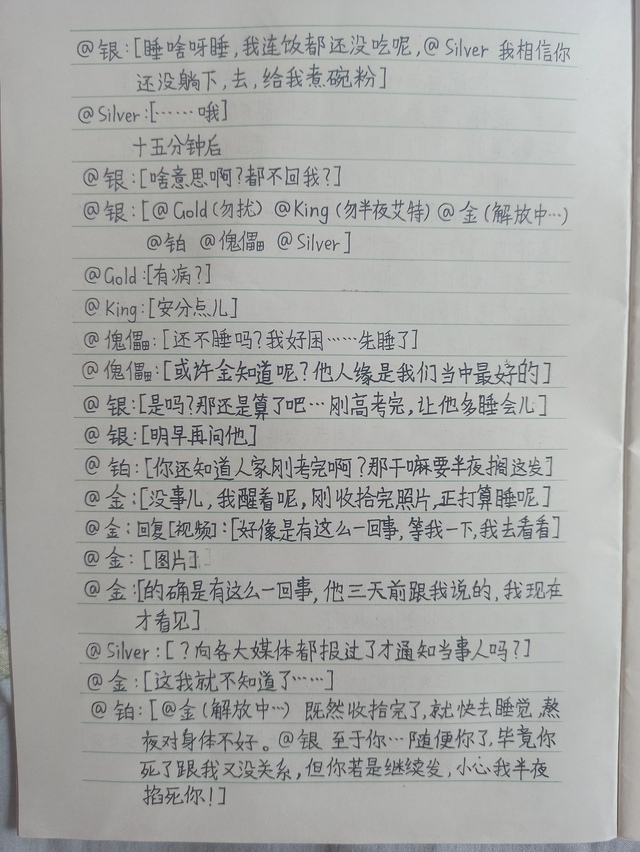 @银:[睡啥呀睡,我连饭都还没吃呢,@Silver 我相信你
还没躺下,去,给我煮碗粉]
@Silver:[……哦]
十五分钟后
@银:[啥意思啊?都不回我?]
@银:[@Gold(勿扰) @King(勿半夜艾特) @金(解放中…)
@铂 @傀儡 @Silver]
@Gold:[有病?]
@King:[安分点儿]
@傀儡:[还不睡吗?我好困……先睡了]
@傀儡:[或许金知道呢?他人缘是我们当中最好的]
@银:[是吗?那还是算了吧…刚高考完,让他多睡会儿]
@银:[明早再问他]
@铂:[你还知道人家刚考完啊?那干嘛要半夜搁这发]
@金:[没事儿,我醒着呢,刚收拾完照片,正打算睡呢]
@金:回复[视频]:[好像是有这么一回事,等我一下,我去看看]
@金:[图片]
@金:[的确是有这么一回事,他三天前跟我说的,我现在
才看见]
@Silver:[?向各大媒体都报过了才通知当事人吗?]
@金:[这我就不知道了……]
@铂:[@金(解放中…) 既然收拾完了,就快去睡觉,熬
夜对身体不好。@银 至于你…随便你了,毕竟你
死了跟我又没关系,但你若是继续发,小心我半夜
掐死你!]